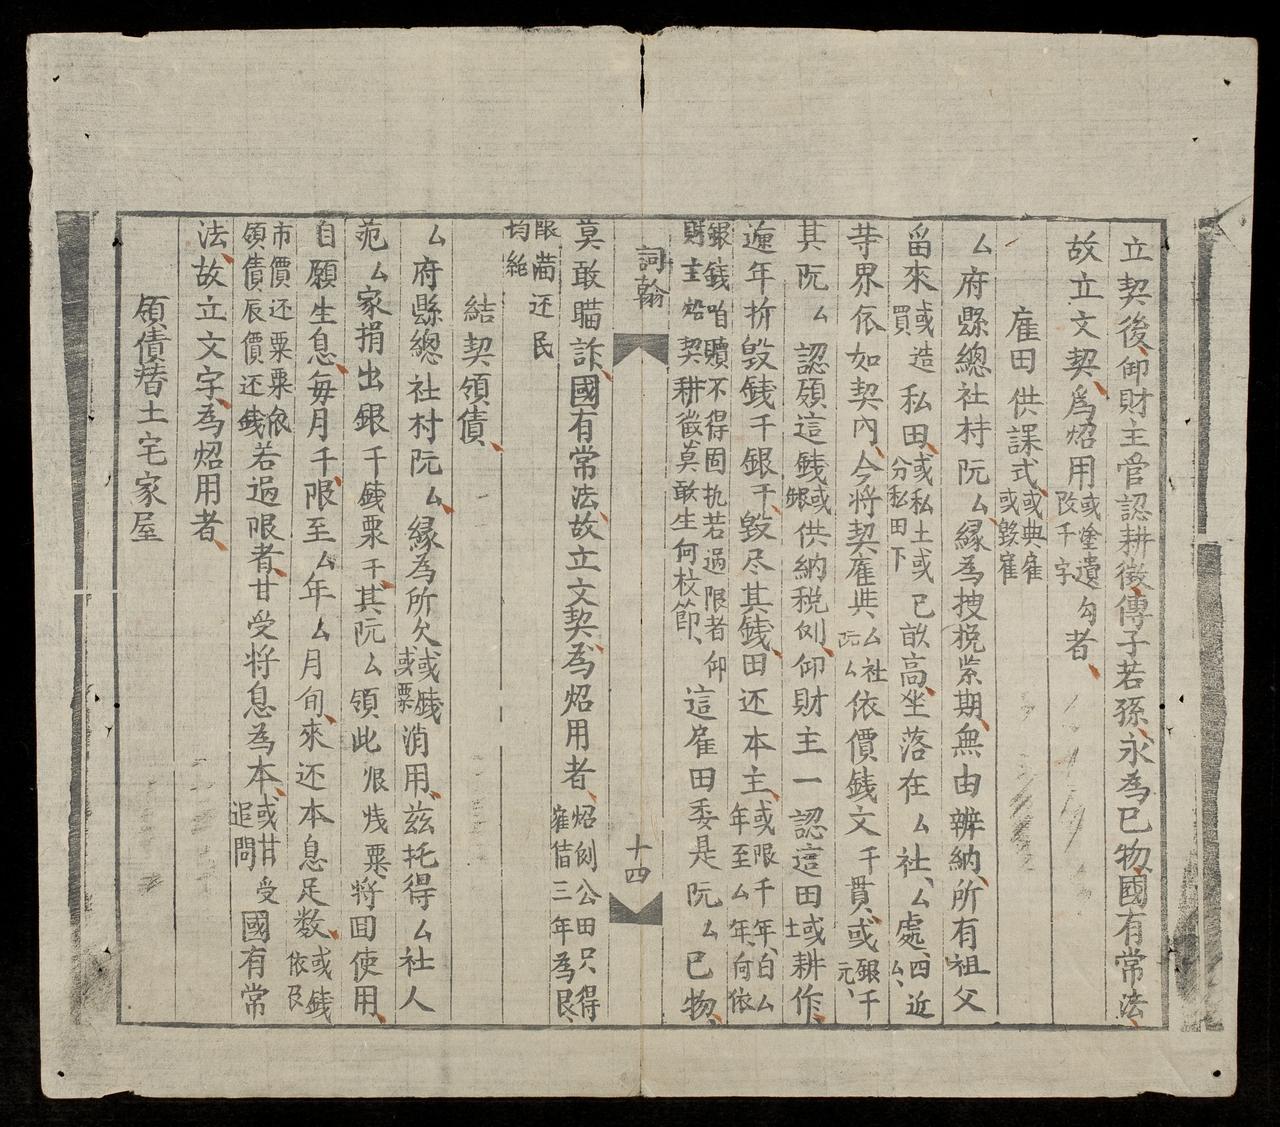 立契後仰財主官認耕徵傳子若孫永為已物國有常法
故立文契為炤用或塗遺改千字勾者
雇田供課式或典雇或毀雇
厶府縣總社村阮厶緣為捜挽柴期無由辨納所有祖父
留來或造買私田或私土或分私田下已畝高坐落在厶社厶處四近厶
䓁界依如契內今將契雇與厶社阮厶依價錢文千貫或銀千元
其阮厶認領這錢或銀供納稅例仰財主一認這田或土耕作
遞年折毀錢千銀千毀尽其錢田还本主或限千年自厶年至厶年何依
銀錢咱贖不得固执若過限者仰財主炤契耕徵莫敢生何枝節這雇田委是阮厶已物
詞翰
十四
莫敢瞄詐國有常法故立文契為炤用者炤例公田只得雇借三年為限
限满还民均給
結契領債
厶府縣總社村阮厶緣為所欠或錢或粟消用茲托得厶社人
范厶家捐出銀千錢粟千其阮厶領此銀錢粟將回使用
自願生息每月千限至厶年厶月旬來还本息足数或錢依及
市價还粟粟依領債辰價还錢若過限者甘受將息為本或甘受追問國有常
法故立文字為炤用者
領債替土宅家屋